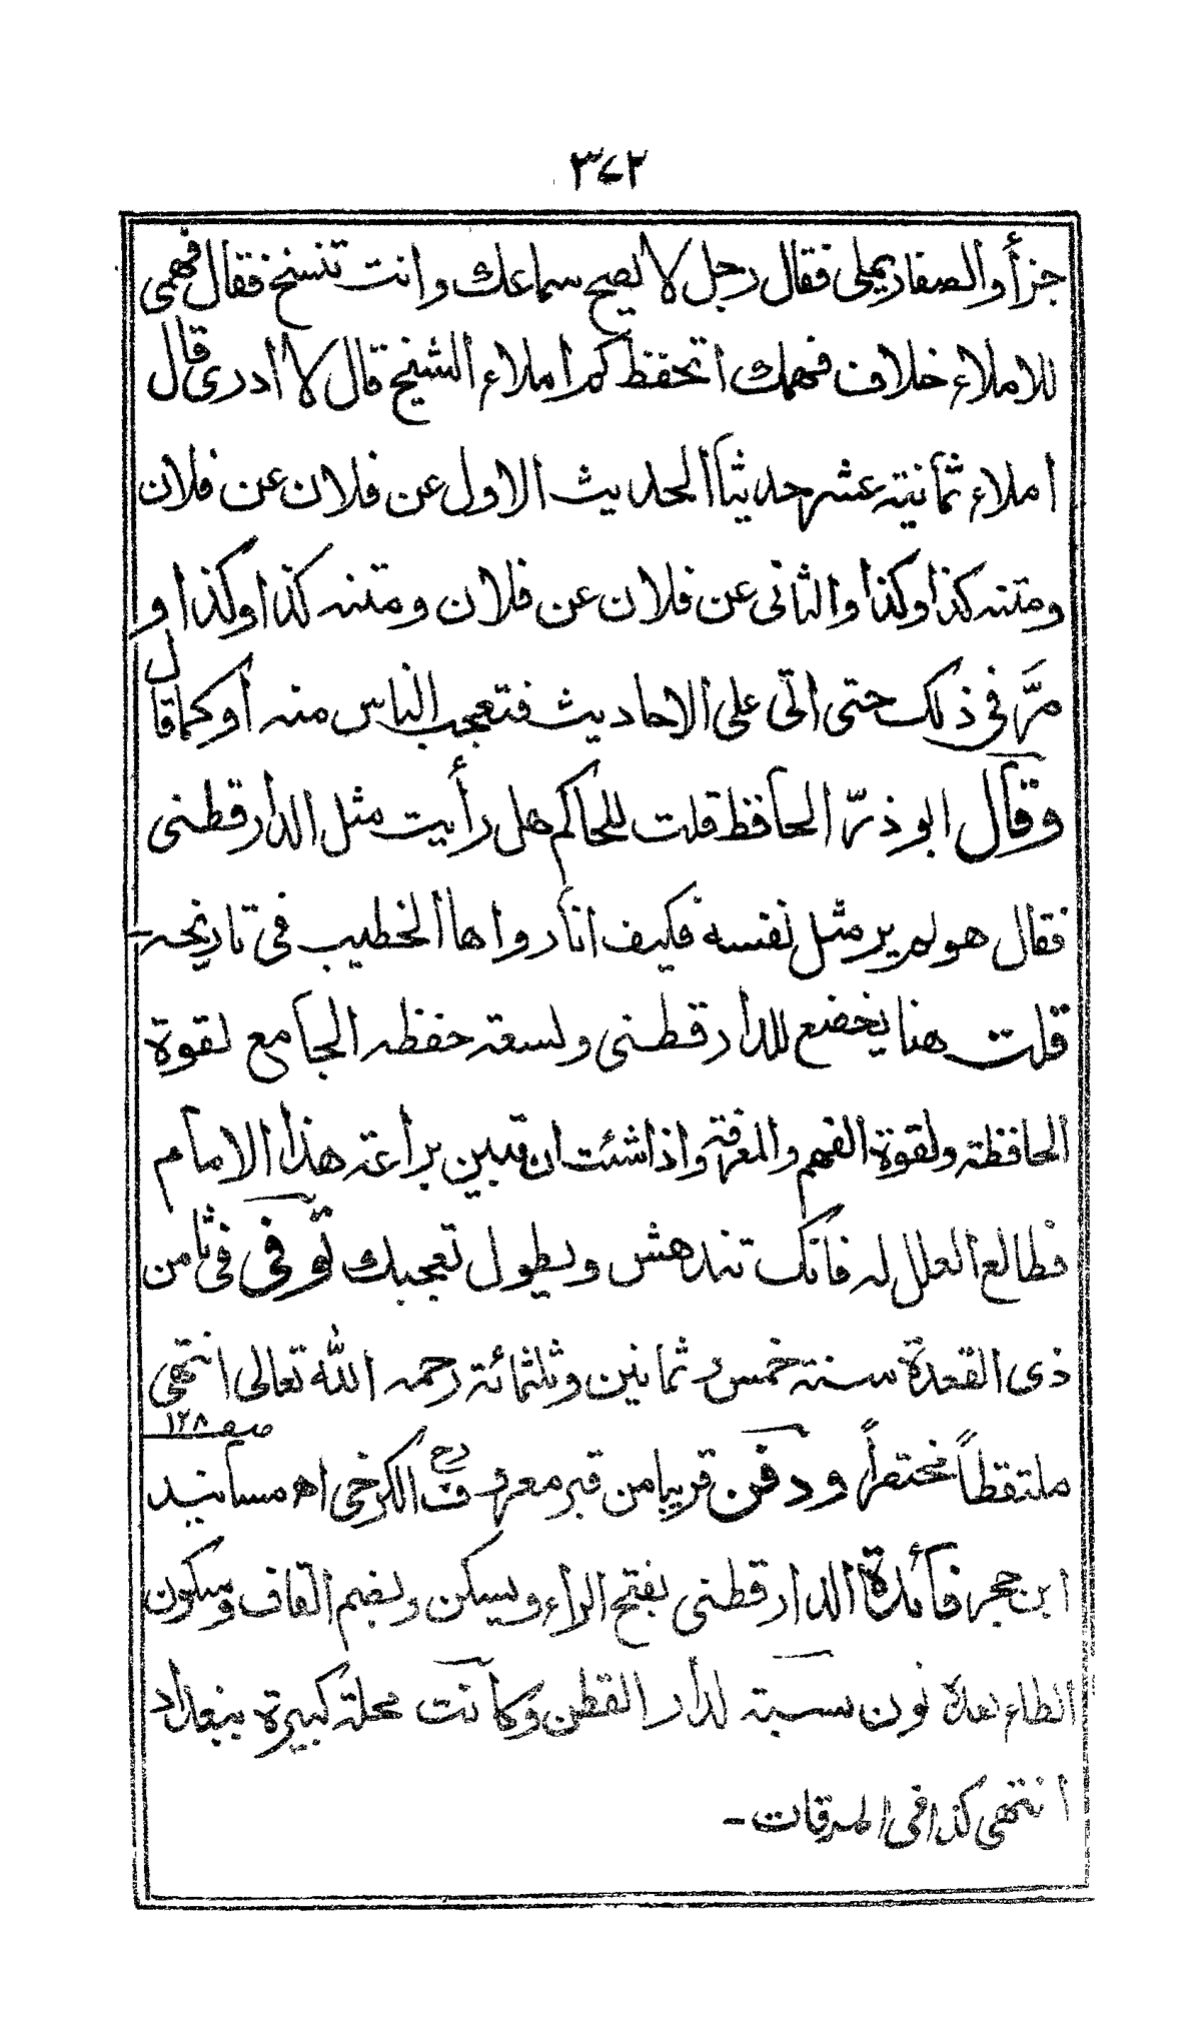 ٣٤٢
جزأ والصفار يملى فقال رجل لا يصح سماعك وانت تنسخ فقال فهمى
للاملاء خلاف فهمك اتحفظ كم املاء الشيخ قال لا ادرى قال
املاء ثمانية عشر حديثا الحديث الاول عن فلان عن فلان
ومتنه كذا وكذا والثانى عن فلان عن فلان ومتنه كذا وكذا و
مرَّ فى ذلك حتى اتى على الاحاديث فتعجب الناس منه أو كما قال
وقال ابو ذرّ الحافظ قلت للحاكم هل رأيت مثل الدار قطنى
فقال هو لم ير مثل نفسه فكيف انا رواها الخطيب فى تاريخه
قلت هنا يخضع للدار قطنى ولسعة حفظه الجامع لقوة
الحافظة ولقوة الفهم والمعرفة واذا شئت ان تبين براعة هذا الامام
فطالع العلل له فانك تندهش ويطول تعجبك توفى فى ثامن
ذى القعدة سنة خمس و ثمانين وثلثمائة رحمه الله تعالى انتهى
صفـ ١٢٨
ملتقطاً مختصراً ودفن قريبا من قبر معروف الكرخى اھ مسانيد
ابن حجر فائدة الدار قطنى بفتح الراء ويسكن وبضم القاف وسكون
الطاء بعدة نون نسبة لدار القطن وكانت محلة كبيرة ببغداد
انتهى كذا فى المرقات -